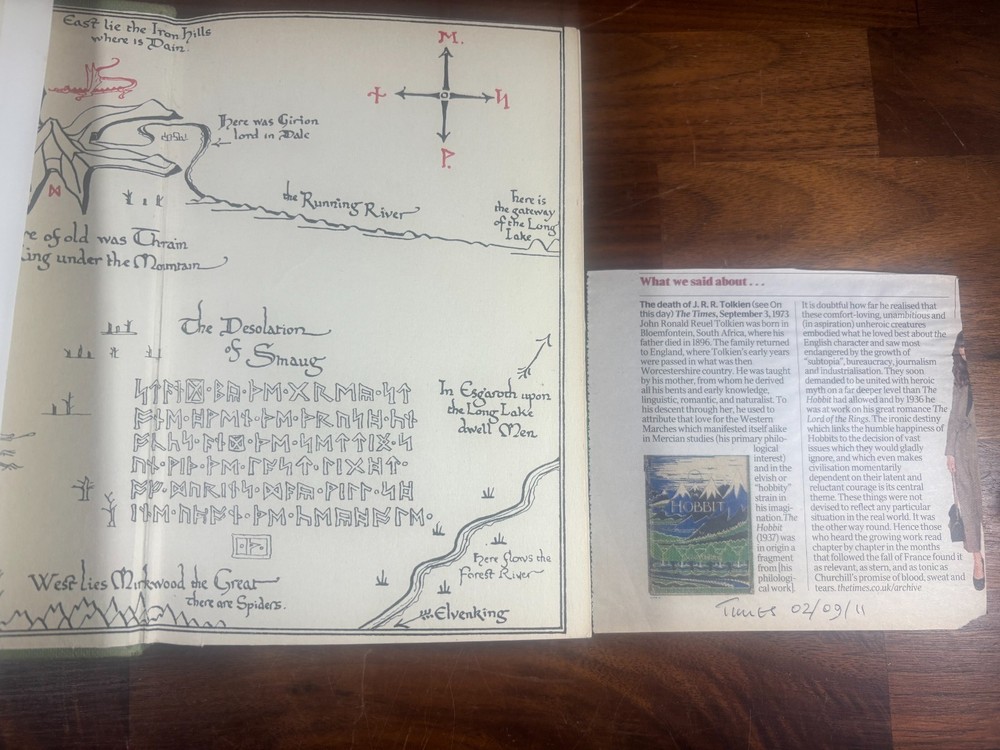 East lie the Iron Hills
where is Dain.
ᛖ.
ᚾ
ᛋ
ᚹ.
Here was Girion
lord in Dale
ᛞ
the Running River
here is
the gateway
of the Long
Lake
re of old was Thrain
King under the Mountain
The Desolation
of Smaug
ᛋᛏᚪᚾᛞ·ᛒᚣ·ᚦᛖ·ᚷᚱᛖᚣ·ᛋᛏ
ᚩᚾᛖ·ᚻᚹᛖᚾ·ᚦᛖ·ᚦᚱᚢᛋᚻ·ᚳᚾ
ᚩᚳᛋ·ᚪᚾᛞ·ᚦᛖ·ᛋᛖᛏᛏᛝ·ᛋ
ᚢᚾ·ᚹᛁᚦ·ᚦᛖ·ᛚᚪᛋᛏ·ᛚᛁᚷᚻᛏ·
ᚩᚠ·ᛞᚢᚱᛁᚾᛋ·ᛞᚪᚣ·ᚹᛁᛚᛚ·ᛋᚻ
ᛁᚾᛖ·ᚢᛈᚩᚾ·ᚦᛖ·ᚳᛖᚣᚻᚩᛚᛖ·
In Esgaroth upon
the Long Lake
dwell Men
here flows the
Forest River
West lies Mirkwood the Great
there are Spiders.
Elvenking
What we said about . . .
The death of J. R. R. Tolkien (see On
this day) The Times, September 3, 1973
John Ronald Reuel Tolkien was born in
Bloemfontein, South Africa, where his
father died in 1896. The family returned
to England, where Tolkien's early years
were passed in what was then
Worcestershire country. He was taught
by his mother, from whom he derived
all his bents and early knowledge,
linguistic, romantic, and naturalist. To
his descent through her, he used to
attribute that love for the Western
Marches which manifested itself alike
in Mercian studies (his primary philo-
logical
interest)
and in the
elvish or
"hobbity"
strain in
his imagi-
nation. The
Hobbit
(1937) was
in origin a
fragment
from [his
philologi-
cal work].
HOBBIT
It is doubtful how far he realised that
these comfort-loving, unambitious and
(in aspiration) unheroic creatures
embodied what he loved best about the
English character and saw most
endangered by the growth of
"subtopia", bureaucracy, journalism
and industrialisation. They soon
demanded to be united with heroic
myth on a far deeper level than The
Hobbit had allowed and by 1936 he
was at work on his great romance The
Lord of the Rings. The ironic destiny
which links the humble happiness of
Hobbits to the decision of vast
issues which they would gladly
ignore, and which even makes
civilisation momentarily
dependent on their latent and
reluctant courage is its central
theme. These things were not
devised to reflect any particular
situation in the real world. It was
the other way round. Hence those
who heard the growing work read
chapter by chapter in the months
that followed the fall of France found it
as relevant, as stern, and as tonic as
Churchill's promise of blood, sweat and
tears. thetimes.co.uk/archive
TIMES 02/09/11